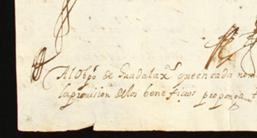 Al Obpo de Guadalaxa que en cada nom
la provision de los beneficios proponga t